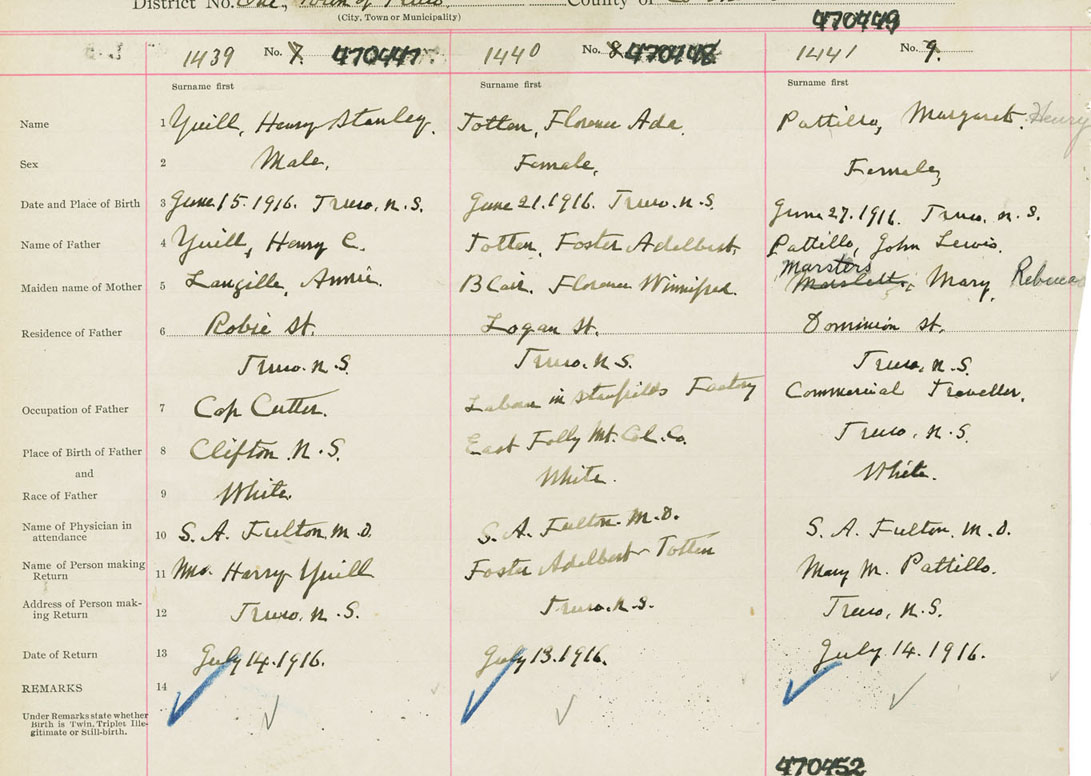 District No. One, Town of Truro County of
(City, Town or Municipality)
470449
1439 No. 7. 470447 1440 No. 8 470448 1441 No. 9.
Surname first Surname first Surname first
Name 1 Yuill, Henry Stanley. Totten, Florence Ada. Pattillo, Margaret. Henry
Sex 2 Male, Female, Female,
Date and Place of Birth 3 June 15. 1916. Truro. N.S. June 21. 1916. Truro. N.S. June 27. 1916. Truro. N.S.
Name of Father 4 Yuill, Henry C. Totten, Foster Adelbert, Pattillo, John Lewis.
Marsters
Maiden name of Mother 5 Langille, Annie. Blair, Florence Winnifred. Mary, Rebecca
Residence of Father 6 Robie St. Logan St. Dominion St.
Truro. N.S. Truro. N.S. Truro, N.S.
Occupation of Father 7 Cap Cutter. Labour in Stanfields Factory Commercial Traveller.
Place of Birth of Father 8 Clifton N.S. East Folly Mt. Col. Co. Truro, N.S.
and
Race of Father 9 White. White. White.
Name of Physician in
attendance 10 S. A. Fulton. M.D. S. A. Fulton. M.D. S. A. Fulton. M.D.
Name of Person making
Return 11 Mrs. Harry Yuill Foster Adelbert Totten Mary M. Pattillo.
Address of Person mak-
ing Return 12 Truro, N.S. Truro. N.S. Truro, N.S.
Date of Return 13 July 14. 1916. July 13. 1916. July 14. 1916.
REMARKS 14
Under Remarks state whether
Birth is Twin, Triplet Ille-
gitimate or Still-birth.
470452